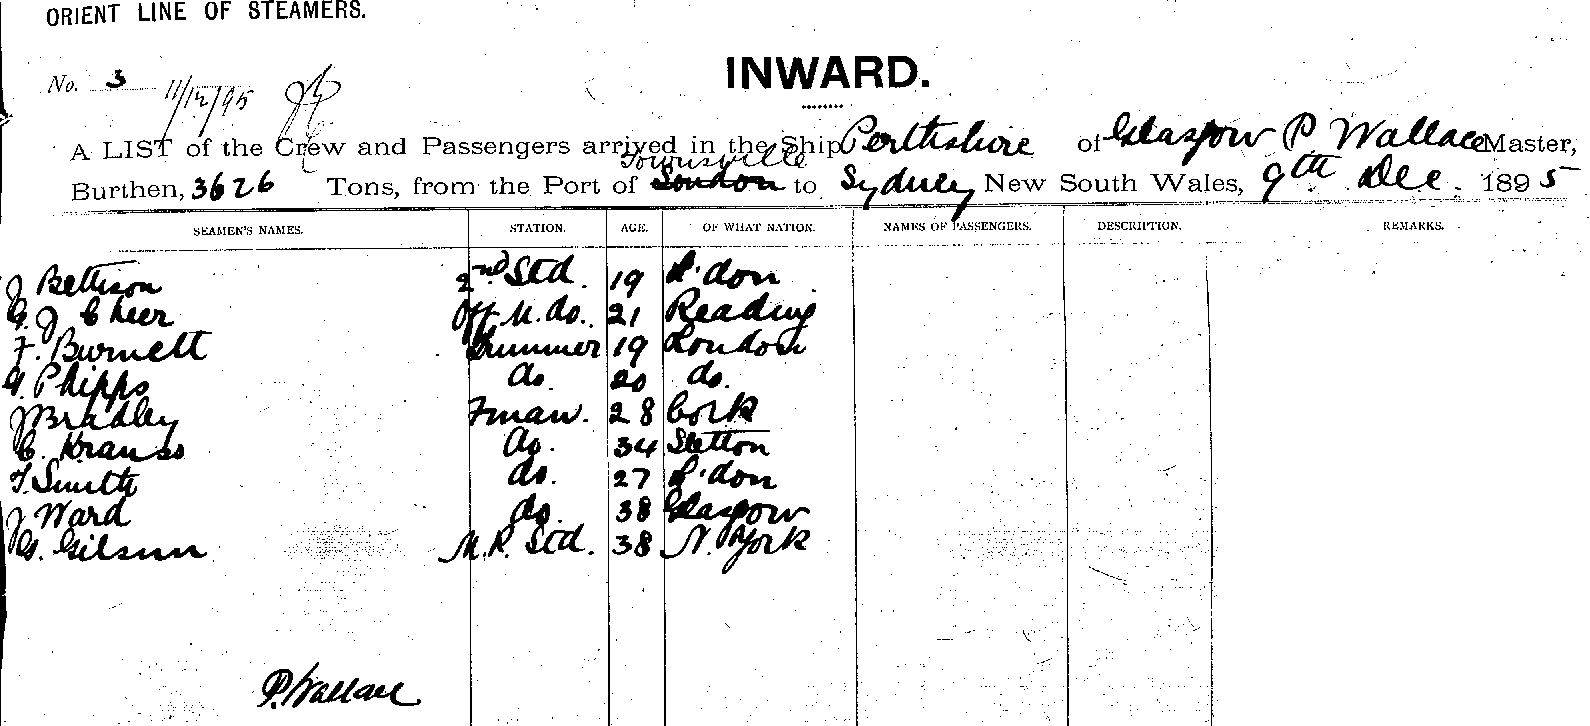 ORIENT LINE OF STEAMERS.
INWARD.
No. 3 11/12/95
A LIST of the Crew and Passengers arrived in the Ship Perthshire of Glasgow P. Wallace Master,
Townsville
Burthen, 3626 Tons, from the Port of London to Sydney New South Wales, 9th Dec. 1895
SEAMEN'S NAMES. STATION. AGE. OF WHAT NATION. NAMES OF PASSENGERS. DESCRIPTION. REMARKS.
J Bettison 2nd Std. 19 L'don
G. J Cheer Off M. do. 21 Reading
F. Burnett Trimmer 19 London
G. Phipps do. 20 do.
J Bradley Fman. 28 Cork
C. Krauss do. 34 Stetton
F. Smith do. 27 L'don
J Ward do. 38 Glasgow
G. Gilsnn M.R. Std. 38 N. York
P. Wallace